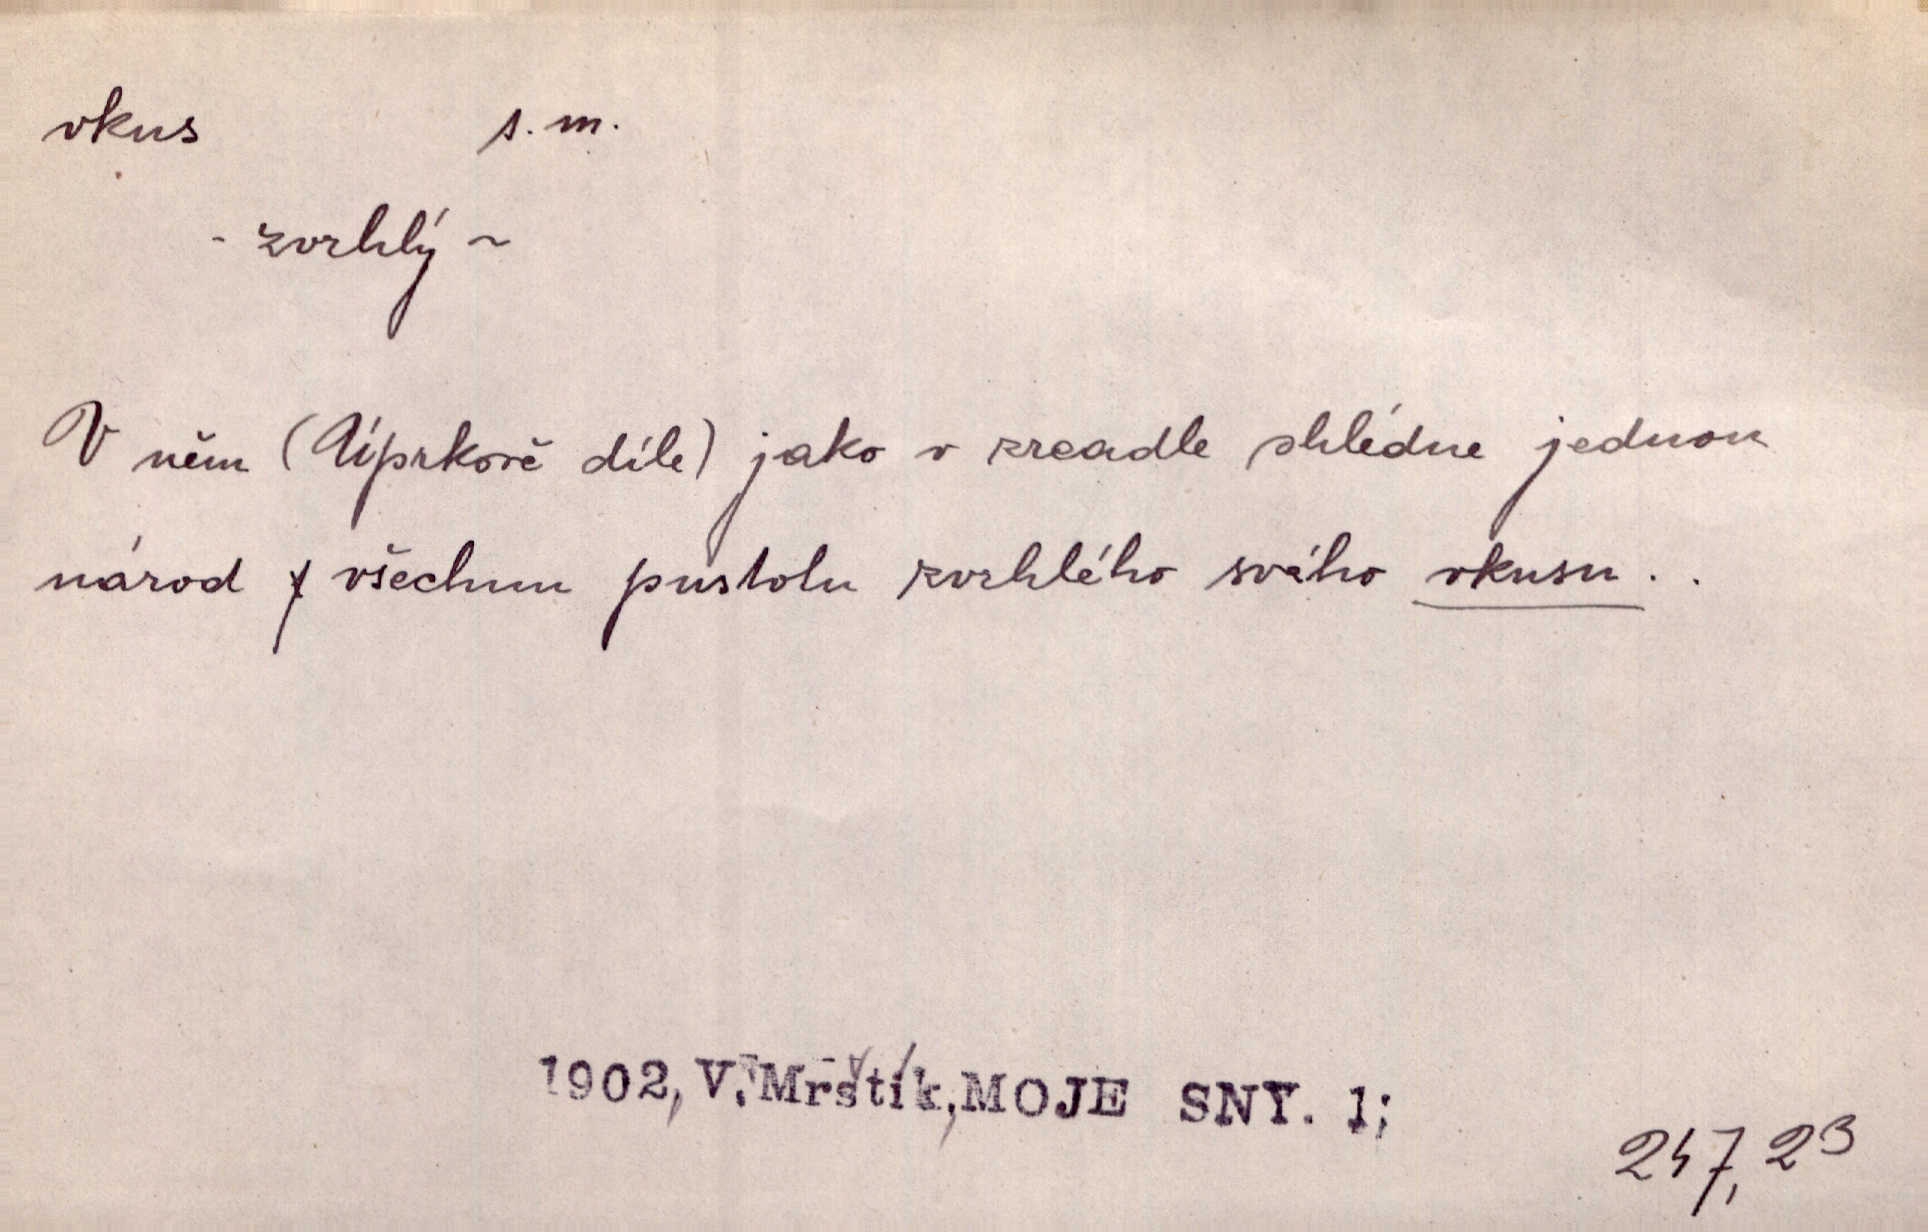 vkus s. m.
- zvrhlý ~
V něm (Úprkově díle) jako v zrcadle shlédne jednou
národ všechnu pustotu zvrhlého svého vkusu . .
1902, V. Mrštík, MOJE SNY. 1;
247, 23